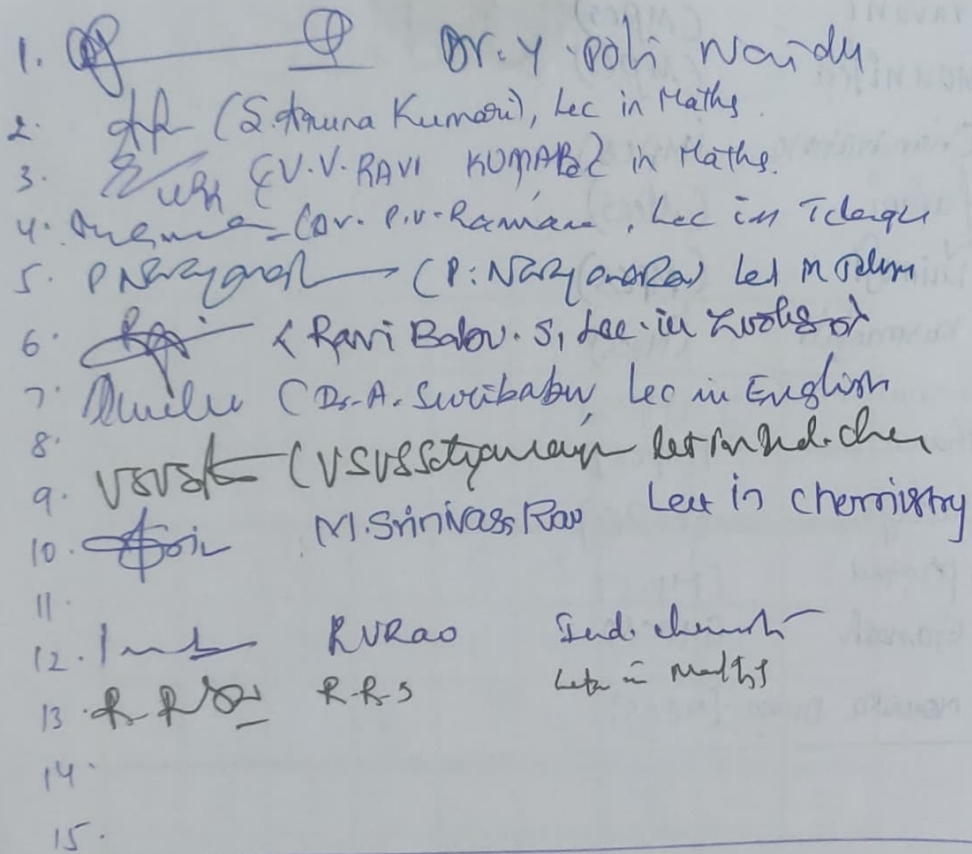 1. Dr. Y. Poli Naidu
2. (S. Aruna Kumari), Lec in Maths.
3. (V.V. RAVI KUMAR) Lec in Maths.
4. (Dr. P.V. Ramana, Lec in Telugu
5. P Narayanarao (P. Narayana Rao) Lect in
6. (Ravi Babu. S, Lec. in Zoology
7. (Dr. A. Suribabu, Lec in English
8.
9. (VSVS Satyanarayana Lect in Ind. che
10. M. Srinivasa Rao Lect in Chemistry
11.
12. RVRao Ind. chemist
13. R.R.S Lect in Maths
14.
15.